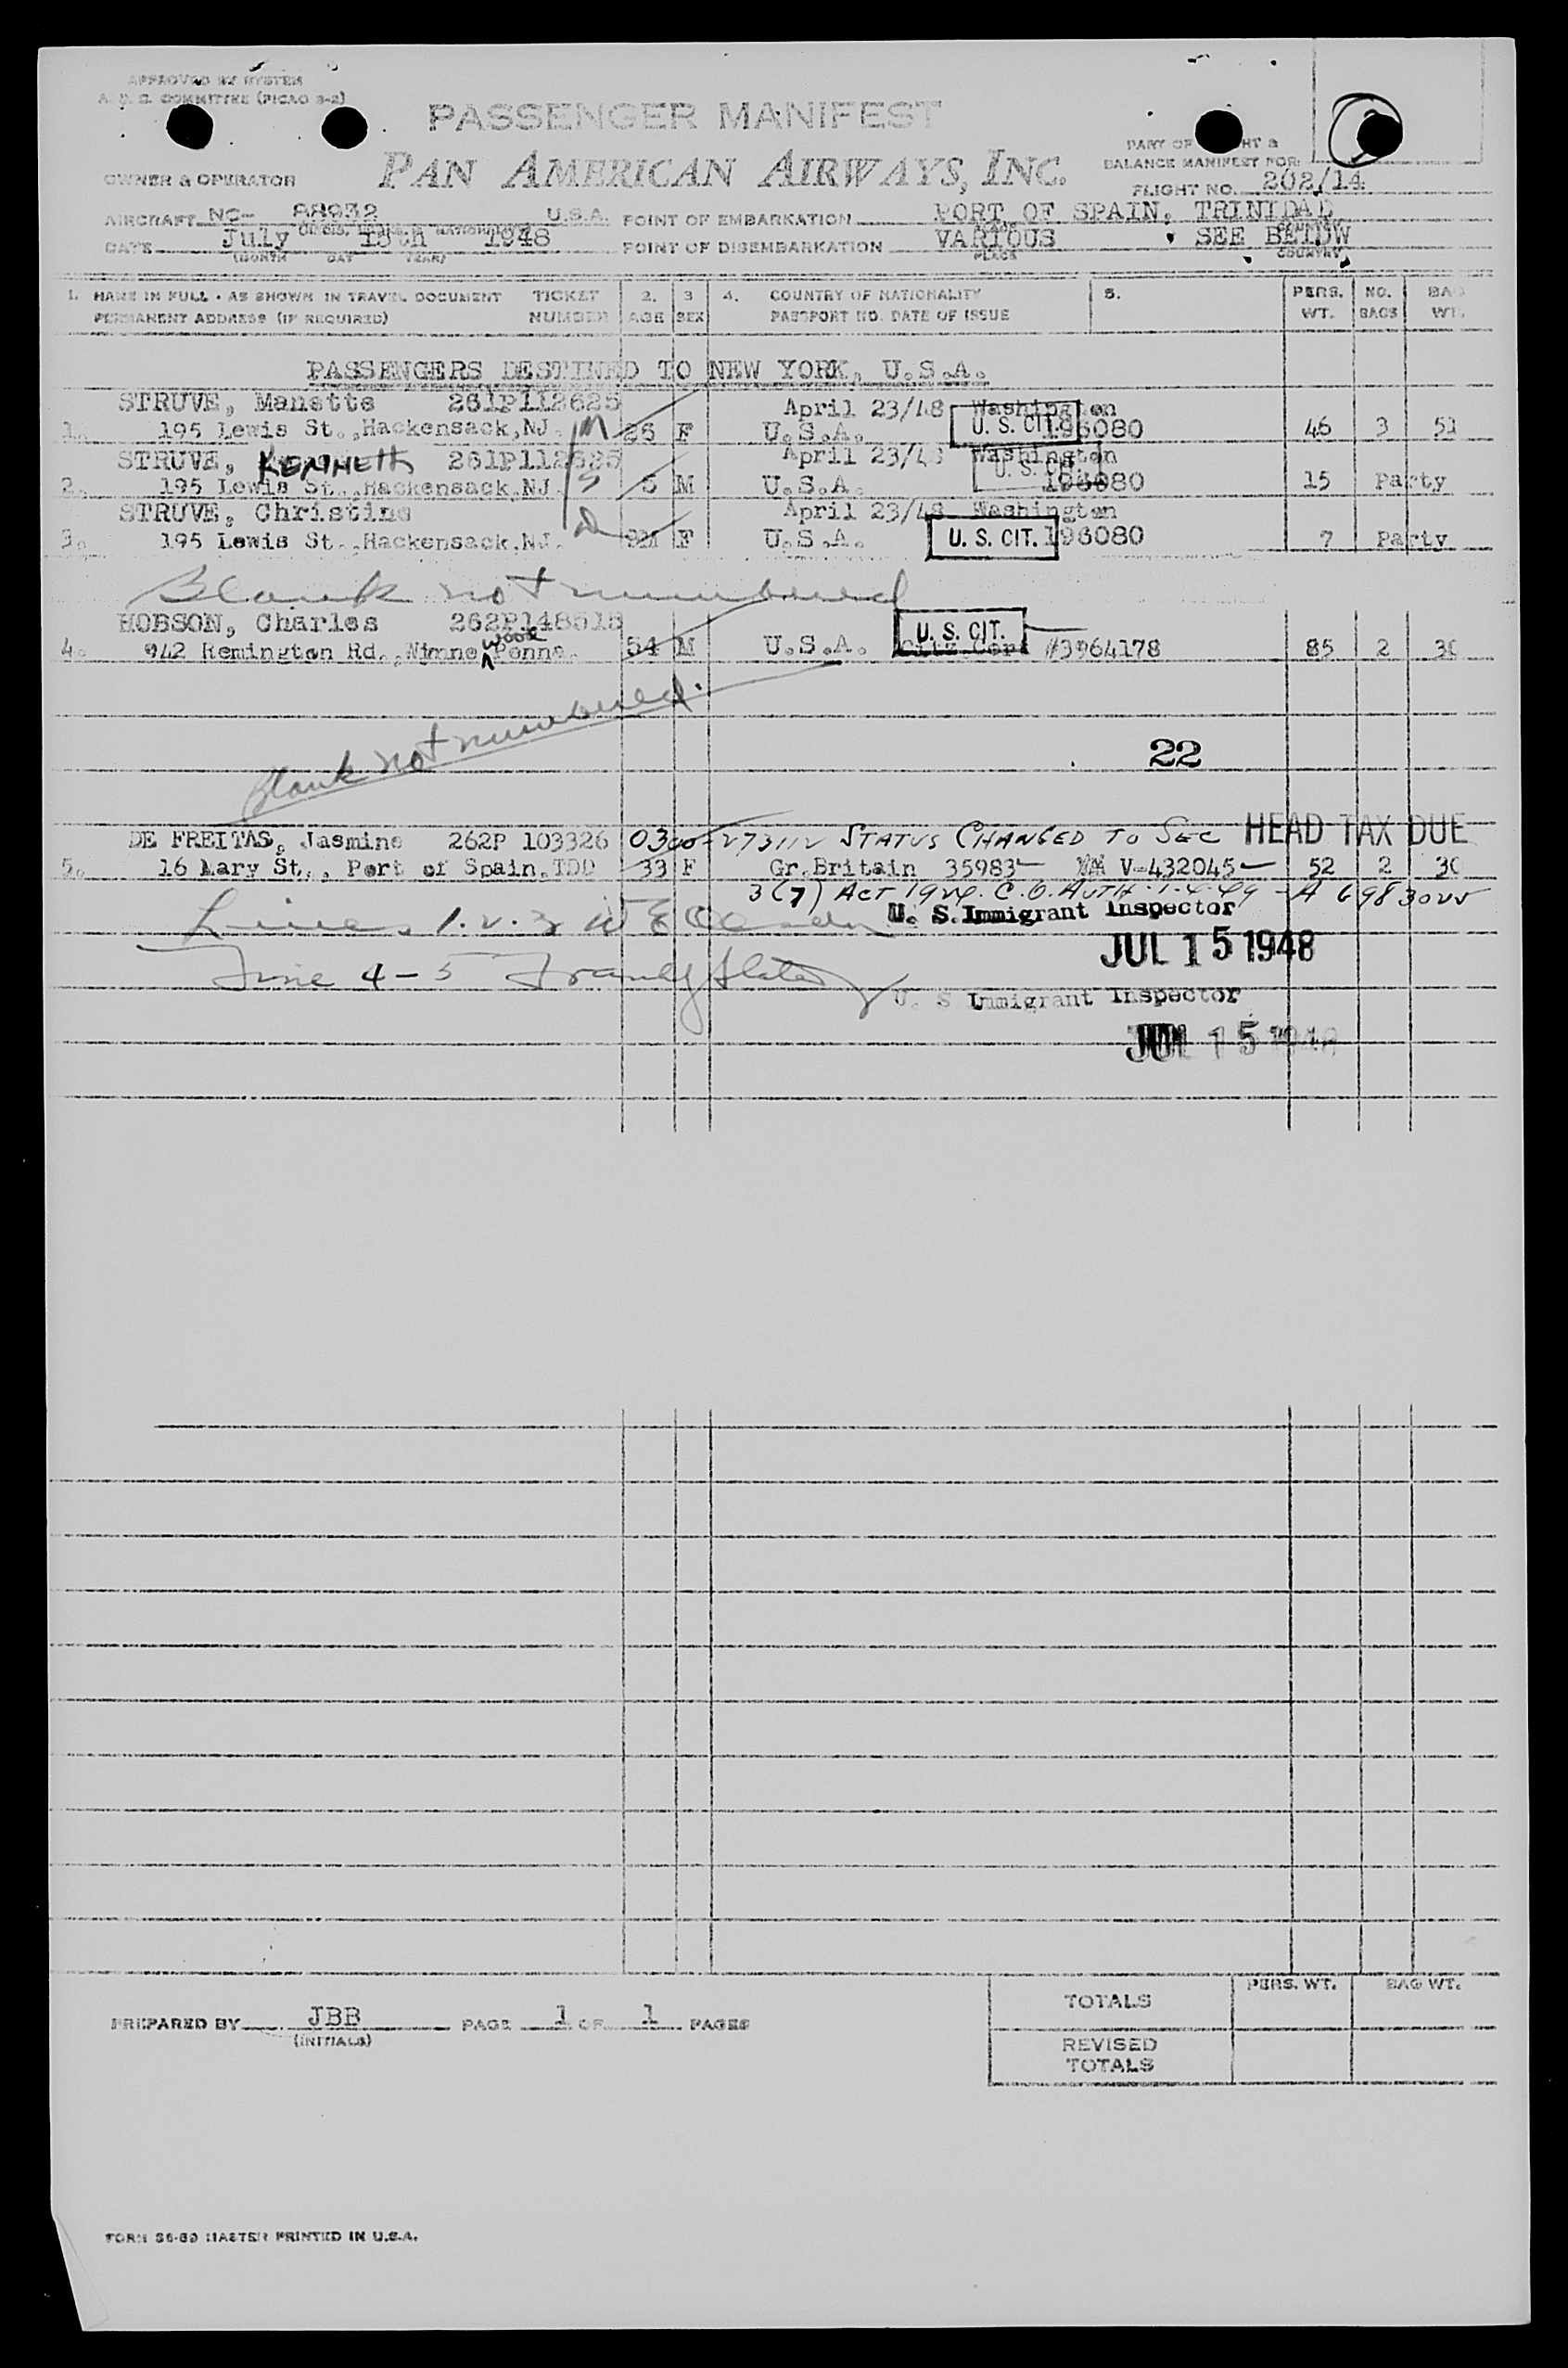 APPROVED BY SYSTEM
A.D.C. COMMITTEE (PICAO 3-2)
PASSENGER MANIFEST
PAN AMERICAN AIRWAYS, INC.
OWNER & OPERATOR
PART OF
BALANCE MANIFEST FOR:
FLIGHT NO. 202/14
AIRCRAFT NC- 88932 U.S.A. POINT OF EMBARKATION PORT OF SPAIN, TRINIDAD
DATE July 15th 1948 POINT OF DISEMBARKATION VARIOUS SEE BELOW
(MONTH DAY YEAR) PLACE COUNTRY
1. NAME IN FULL - AS SHOWN IN TRAVEL DOCUMENT TICKET 2. 3 4. COUNTRY OF NATIONALITY 5. PERS. NO. BAG
PERMANENT ADDRESS (IF REQUIRED) NUMBER AGE SEX PASSPORT NO. DATE OF ISSUE WT. BAGS WT.
PASSENGERS DESTINED TO NEW YORK, U.S.A.
STRUVE, Manette 261P112625 April 23/48 Washington
1. 195 Lewis St.,Hackensack,NJ. M F U.S.A. U. S. CIT. 196080 46 3
STRUVE, KENNETH 261P112625 April 23/48 Washington
2. 195 Lewis St.,Hackensack,NJ. S 5 M U.S.A. U. S. CIT. 196080 15 Party
STRUVE, Christine April 23/48 Washington
3. 195 Lewis St.,Hackensack,NJ. D 9M F U.S.A. U. S. CIT. 196080 7 Party
Blank not numbered
HOBSON, Charles 262P148515 U. S. CIT.
4. 942 Remington Rd.,Wynne wood Penna. 54 M U.S.A. Citz.Cert #3964178 85 2 30
Blank not numbered.
22
DE FREITAS, Jasmine 262P 103326 0300-273112 STATUS CHANGED TO SEC HEAD TAX DUE
5. 16 Mary St., Port of Spain,TDD 33 F Gr.Britain 35983 V-432045 52 2 30
3(7) ACT 1924. C.O. AUTH. 1-4-49 - A 6983025
Lines 1.2.3 W E
U. S. Immigrant Inspector
JUL 15 1948
Line 4-5
U. S Immigrant Inspector
JUL 15 1948
TOTALS PERS. WT. BAG WT.
PREPARED BY JBB PAGE 1 OF 1 PAGES
(INITIALS)
REVISED
TOTALS
FORM 56-69 MASTER PRINTED IN U.S.A.